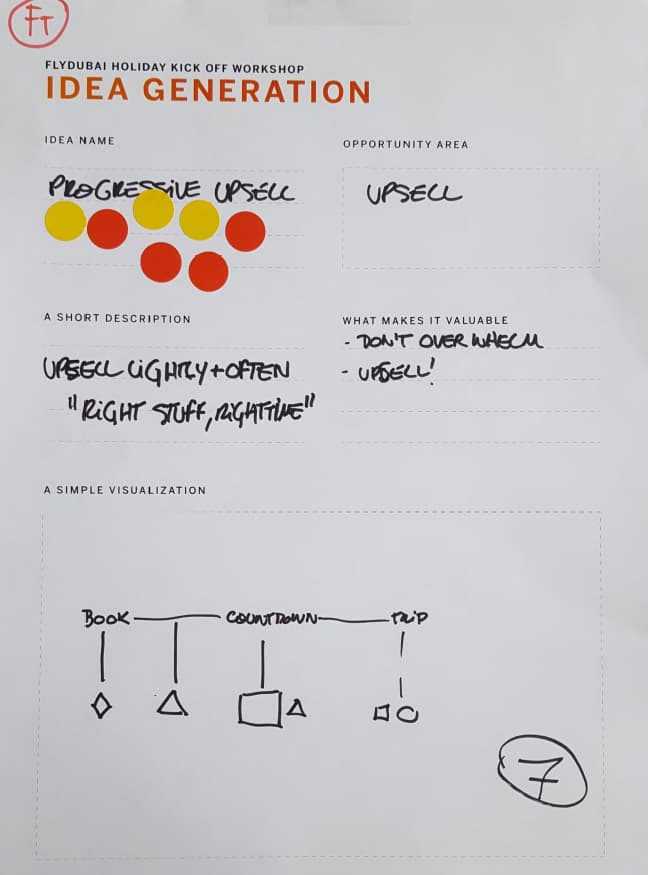 FT
FLYDUBAI HOLIDAY KICK OFF WORKSHOP
IDEA GENERATION
IDEA NAME
PROGRESSIVE UPSELL
OPPORTUNITY AREA
UPSELL
A SHORT DESCRIPTION
UPSELL LIGHTLY + OFTEN
"RIGHT STUFF, RIGHT TIME"
WHAT MAKES IT VALUABLE
- DON'T OVERWHELM
- UPSELL!
A SIMPLE VISUALIZATION
BOOK COUNTDOWN TRIP
7